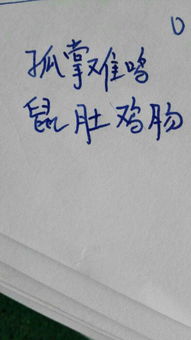 孤掌难鸣
鼠肚鸡肠